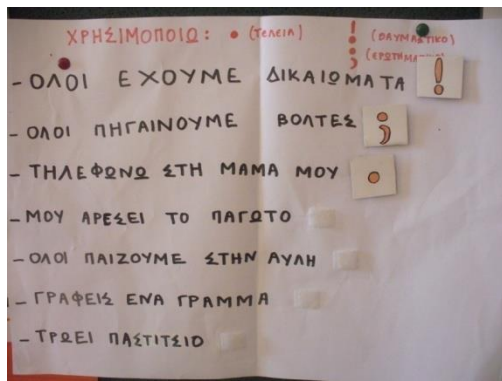 ΧΡΗΣΙΜΟΠΟΙΩ: • (ΤΕΛΕΙΑ) ! (ΘΑΥΜΑΣΤΙΚΟ)
;
- ΟΛΟΙ ΕΧΟΥΜΕ ΔΙΚΑΙΩΜΑΤΑ !
- ΟΛΟΙ ΠΗΓΑΙΝΟΥΜΕ ΒΟΛΤΕΣ ;
- ΤΗΛΕΦΩΝΩ ΣΤΗ ΜΑΜΑ ΜΟΥ •
- ΜΟΥ ΑΡΕΣΕΙ ΤΟ ΠΑΓΩΤΟ
- ΟΛΟΙ ΠΑΙΖΟΥΜΕ ΣΤΗΝ ΑΥΛΗ
- ΓΡΑΦΕΙΣ ΕΝΑ ΓΡΑΜΜΑ
- ΤΡΩΕΙ ΠΑΣΤΙΤΣΙΟ